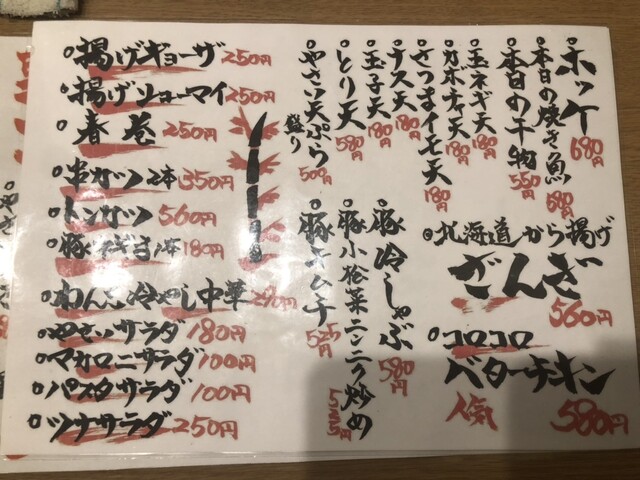 揚げギョーザ 250円
揚げシューマイ 250円
春巻 250円
串カツ2本 350円
トンカツ 560円
豚ネギま1本 180円
わんこ冷やし中華 290円
やさいサラダ 180円
マカロニサラダ 100円
パスタサラダ 100円
ツナサラダ 250円
ホッケ 680円
本日の焼き魚 580円
本日の干物 550円
玉ネギ天 180円
カボチャ天 180円
さつまイモ天 180円
ナス天 180円
玉子天 180円
とり天 580円
やさい天ぷら盛り 500円
北海道から揚げ
ざんぎ
560円
コロコロ
バターチキン
人気 580円
豚冷しゃぶ 580円
豚小松菜ニンニク炒め 555円
豚キムチ 525円